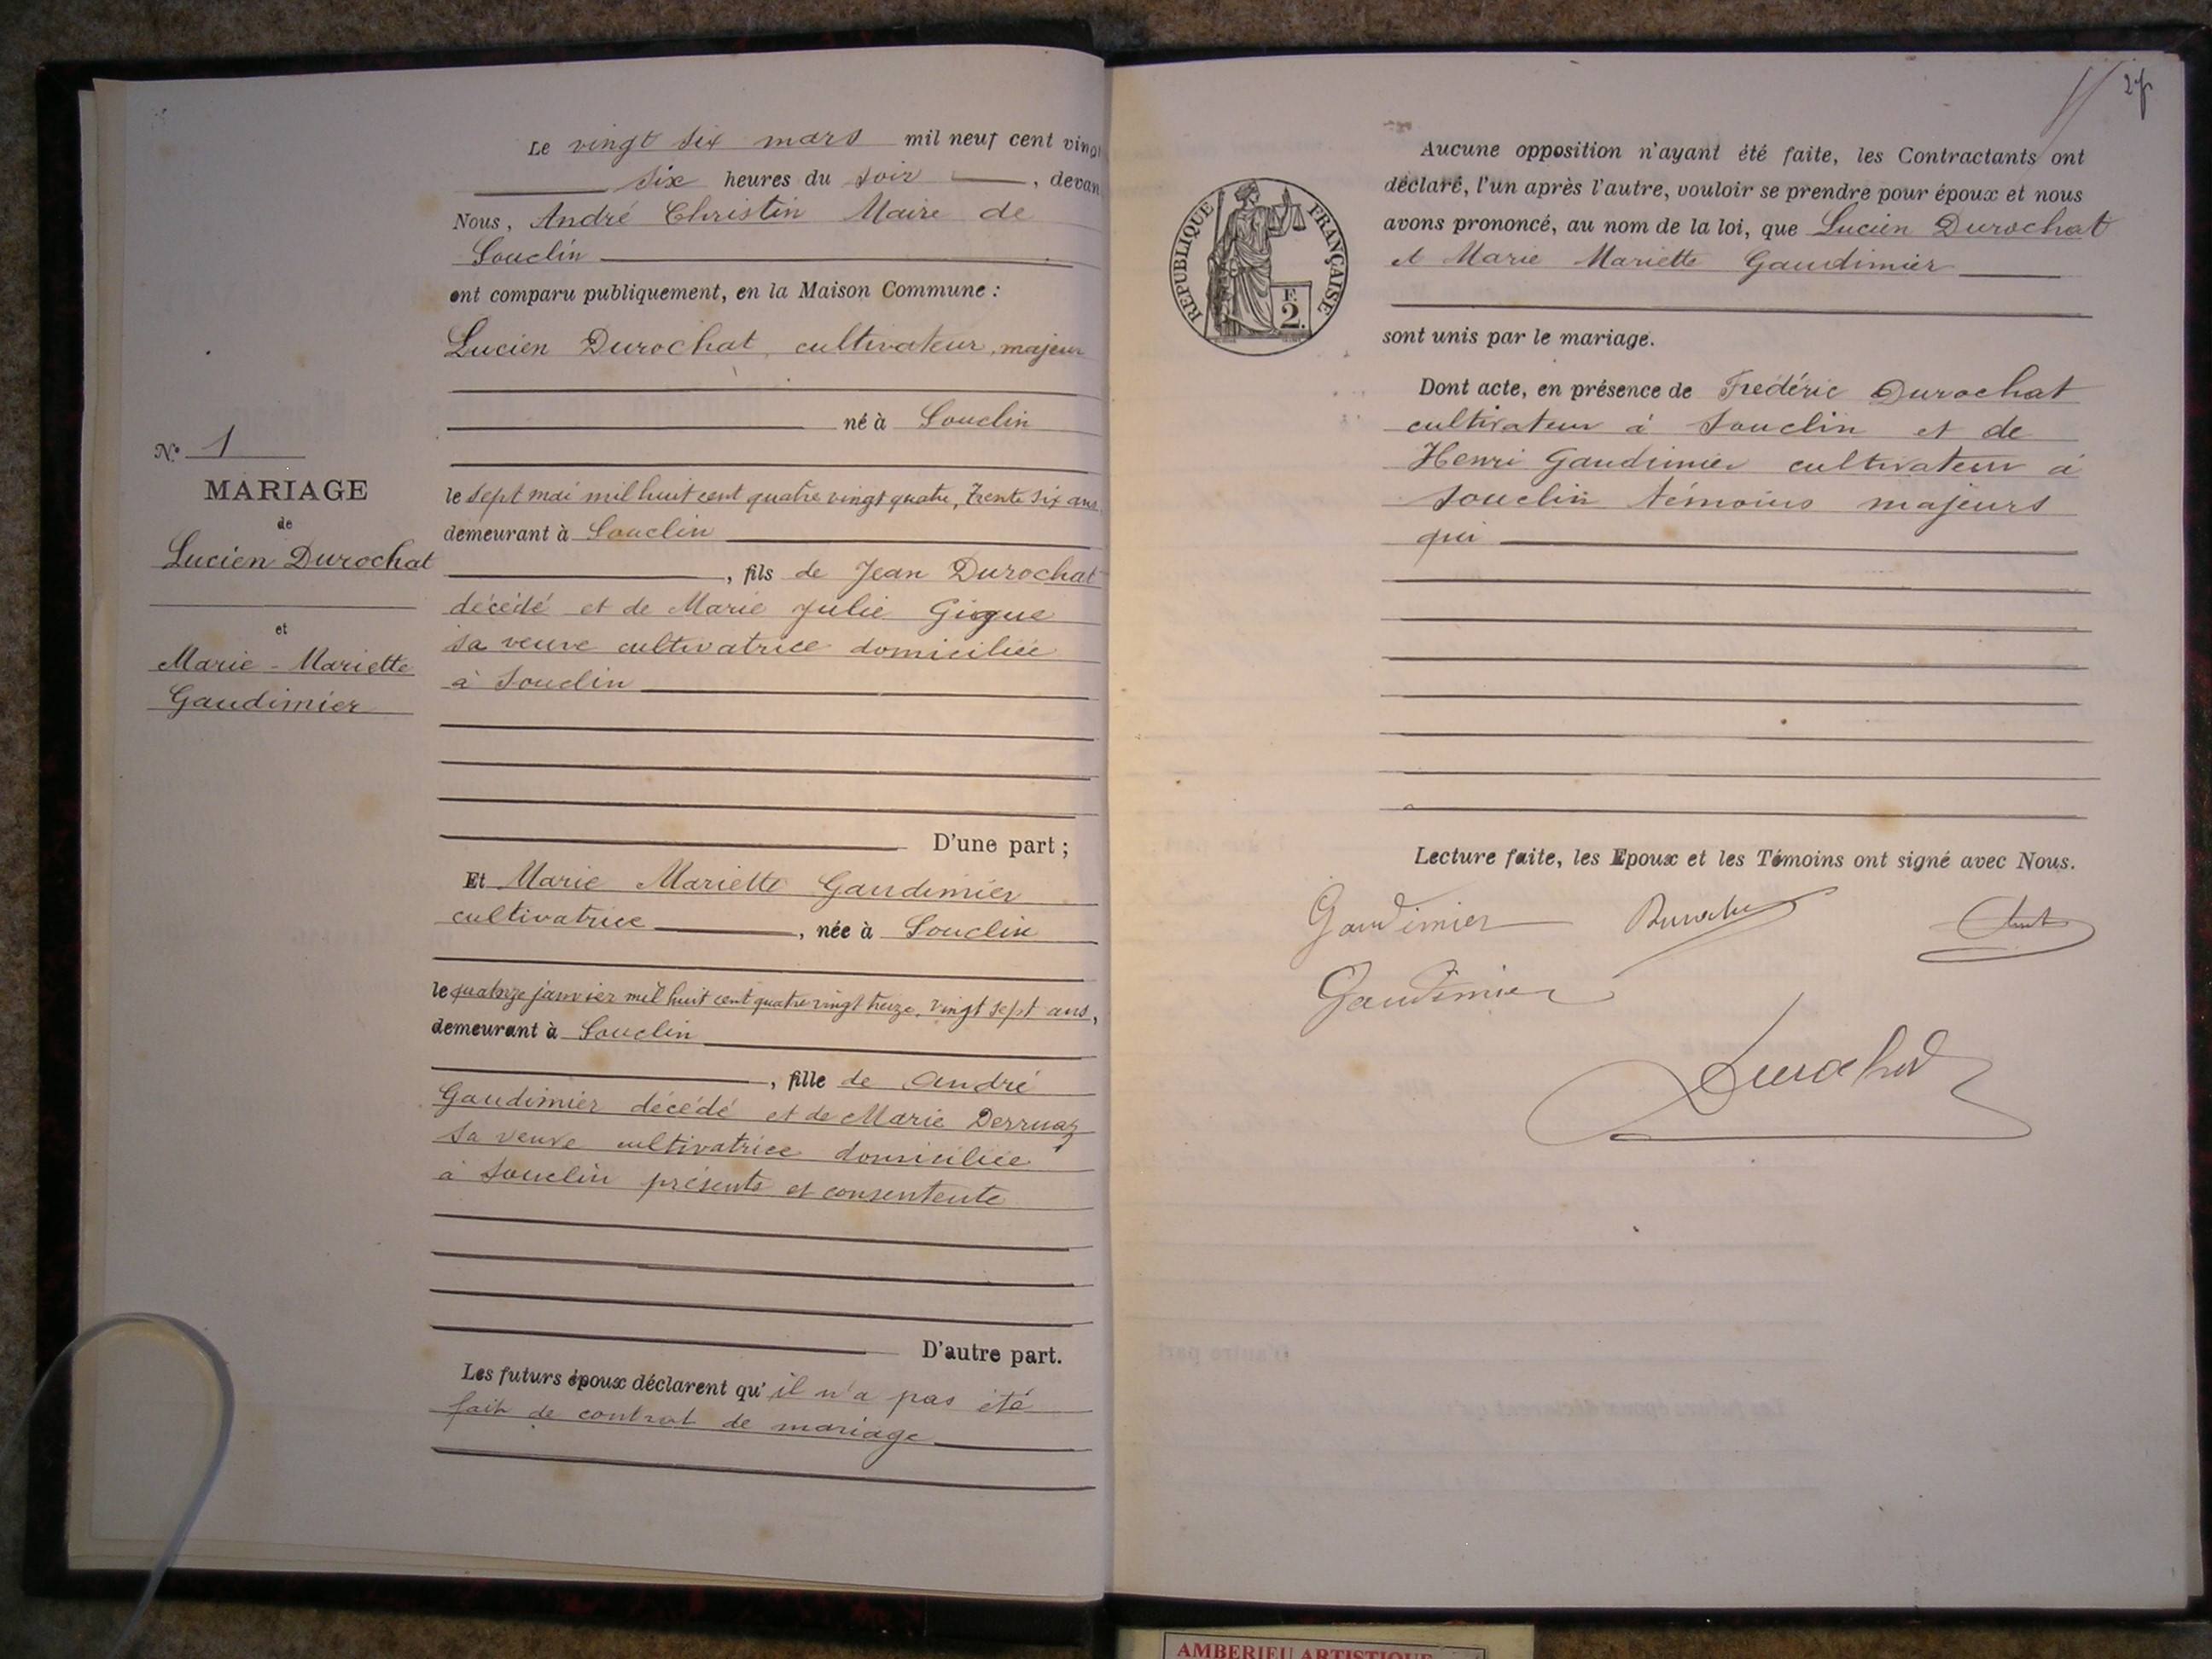 Le vingt six mars mil neuf cent vingt
six heures du soir, devan
Nous, André Christin Maire de
Souclin
ont comparu publiquement, en la Maison Commune :
Lucien Durochat, cultivateur, majeur
né à Souclin
le sept mai mil huit cent quatre vingt quatre, trente six ans
demeurant à Souclin
, fils de Jean Durochat
décédé et de Marie Julie Gigue
sa veuve cultivatrice domiciliée
à Souclin
D'une part ;
Et Marie Mariette Gaudimier
cultivatrice, née à Souclin
le quatorze janvier mil huit cent quatre vingt treize, vingt sept ans,
demeurant à Souclin
, fille de André
Gaudimier décédé et de Marie Derruaz
sa veuve cultivatrice domiciliée
à Souclin présents et consentente
D'autre part.
Les futurs époux déclarent qu'il n'a pas été
fait de contrat de mariage
N° 1
MARIAGE
de
Lucien Durochat
et
Marie - Mariette
Gaudimier
27
RÉPUBLIQUE FRANÇAISE
F.
2.
Aucune opposition n'ayant été faite, les Contractants ont
déclaré, l'un après l'autre, vouloir se prendre pour époux et nous
avons prononcé, au nom de la loi, que Lucien Durochat
et Marie Mariette Gaudimier
sont unis par le mariage.
Dont acte, en présence de Frédéric Durochat
cultivateur à Souclin et de
Henri Gaudimier cultivateur à
Souclin témoins majeurs
qui
Lecture faite, les Epoux et les Témoins ont signé avec Nous.
Gaudimier Durochat
Gaudimier
Durochat
AMBERIEU ARTISTIQUE